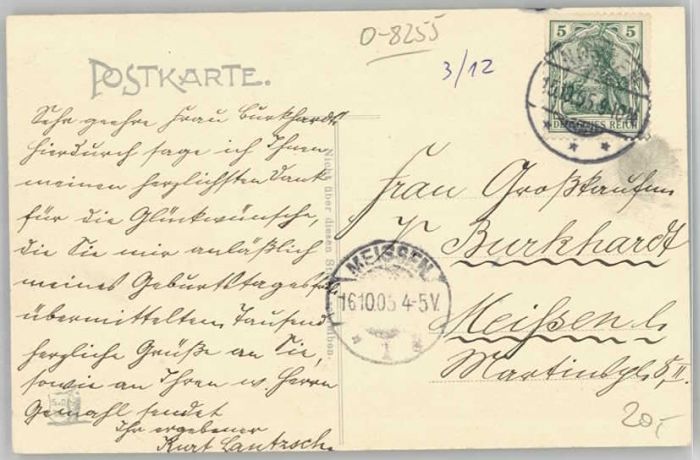 O-8255
3/12
POSTKARTE.
5 5
DEUTSCHES REICH
15.10.05
Sehr geehrte Frau Burkhardt!
Hierdurch sage ich Ihnen
meinen herzlichsten Dank
für die Glückwünsche,
die Sie mir anläßlich
meines Geburtstages
übermittelten. Tausend
herzliche Grüße an Sie,
sowie an Ihren w. Herrn
Gemahl sendet
Ihr ergebener
Kurt Lantzsch.
Nicht über diesen Strich schreiben.
MEISSEN
16.10.05 4-5V.
1
Frau Großkaufm.
Burkhardt
Meißen
Martinstr. 5, II.
20,-